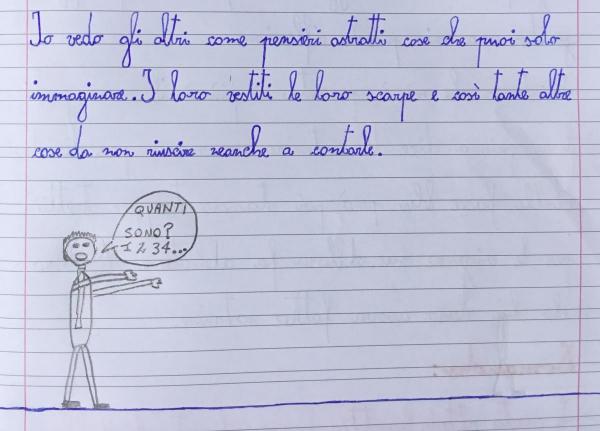 Io vedo gli altri come pensieri astratti cose che puoi solo
immaginare. I loro vestiti le loro scarpe e così tante altre
cose da non riuscire neanche a contarle.
QUANTI
SONO?
1 2 3 4...